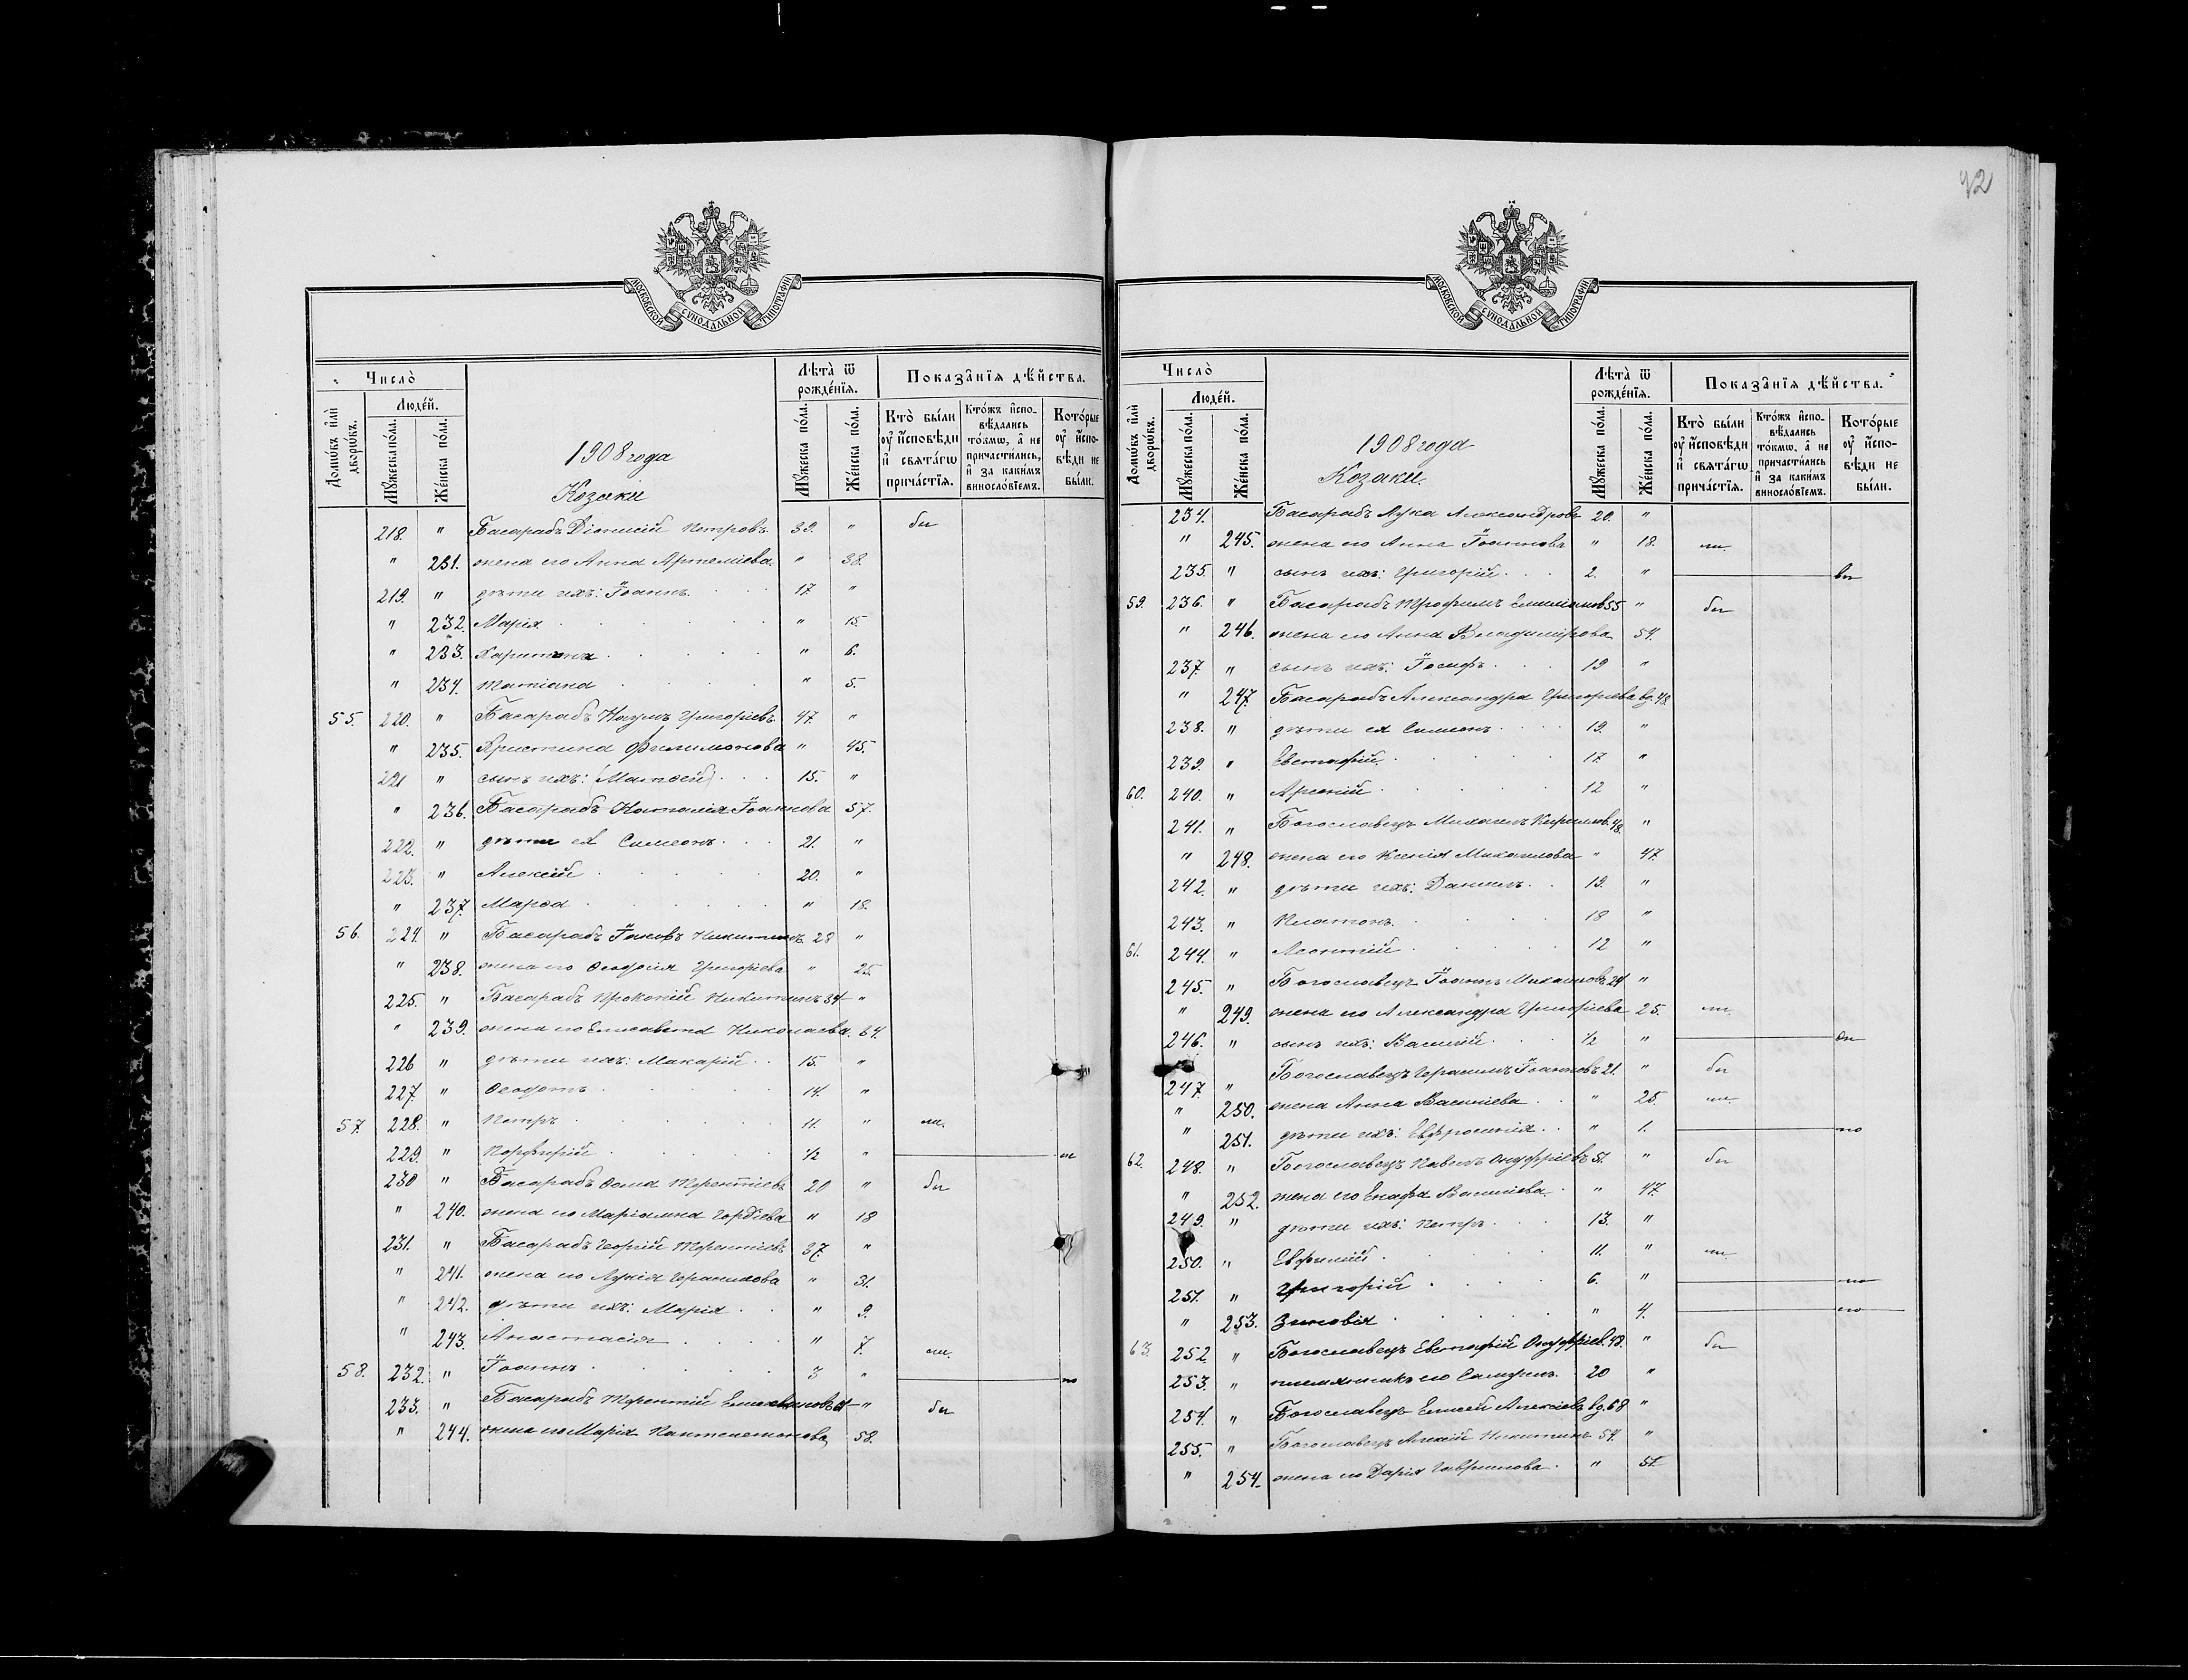 42
МОСКОВСКОЙ СѴНОДАЛЬНОЙ ТИПОГРАФІИ
Число̀
Люде́й.
Домѡ́въ и҆лѝ дворѡ́въ.
Мꙋ́жеска по́ла.
Же́нска по́ла.
1908 года
Козаки
Лѣ́та ѿ рожде́нїѧ.
Мꙋ́жеска по́ла.
Же́нска по́ла.
Показа̑нїѧ дѣ́йства.
Кто̀ бы́ли ᲂу҆ и҆сповѣди и҆ свѧта́гѡ прича́стїѧ.
Кто́жъ и҆сповѣдались то́кмѡ, а҆ не причасти́лись, и҆ за каки́мъ винословїемъ.
Кото́рые ᲂу҆ и҆сповѣди не бы́ли.
218. " Басарабъ Діонисій Петровъ 39. " бы
" 231. жена его Анна Артеміева " 38.
219. " дѣти ихъ: Іоаннъ 17 "
" 232. Марія " 15
" 233. Харитина " 6.
" 234. Татіана " 5.
55. 220. " Басарабъ Наумъ Григоріевъ 47. "
" 235. Христина Филимонова " 45.
221 " сынъ ихъ: (Матѳей) 15. "
" 236. Басарабъ Наталія Іоаннова 57.
222. " дѣти ея Симеонъ 21. "
223. " Алексій 20. "
" 237. Марѳа " 18.
56. 224. " Басарабъ Іаковъ Никитинъ 28 "
" 238. жена его Ѳеодосія Григоріева " 25.
225. " Басарабъ Прокопій Никитинъ 34 "
" 239. жена его Елисавета Николаева 34.
226 " дѣти ихъ: Макарій 15. "
227. " Ѳеодотъ 14. "
57. 228. " Петръ 11. " ли.
229. " Порфирій 1/2 "
230 " Басарабъ Ѳома Терентіевъ 20 " бы
" 240. жена его Маріамна Гордіева " 18
231. " Басарабъ Георгій Терентіевъ 37. "
" 241. жена его Лукія Герасимова " 31.
" 242. дѣти ихъ: Марія " 9.
" 243. Анастасія " 7. ли.
58. 232. " Іоаннъ 3 " по
233. " Басарабъ Терентій Емиліановъ 61 " бы
" 244. жена его Марія Пантелемонова 58.
МОСКОВСКОЙ СѴНОДАЛЬНОЙ ТИПОГРАФІИ
Число̀
Люде́й.
Домѡ́въ и҆лѝ дворѡ́въ.
Мꙋ́жеска по́ла.
Же́нска по́ла.
1908 года
Козаки.
Лѣ́та ѿ рожде́нїѧ.
Мꙋ́жеска по́ла.
Же́нска по́ла.
Показа̑нїѧ дѣ́йства.
Кто̀ бы́ли ᲂу҆ и҆сповѣди и҆ свѧта́гѡ прича́стїѧ.
Кто́жъ и҆сповѣдались то́кмѡ, а҆ не причасти́лись и҆ за каки́мъ винословїемъ.
Кото́рые ᲂу҆ и҆сповѣди не бы́ли.
234. Басарабъ Лука Александровъ 20. "
" 245. жена его Анна Іоаннова " 18. ли.
235. " сынъ ихъ: Григорій 2. "
59. 236. " Басарабъ Трофимъ Емиліановъ 55 " бы
" 246. жена его Анна Владимірова 54.
237. " сынъ ихъ: Іосифъ 19 "
" 247. Басарабъ Александра Григоріева вд. 42.
238. " дѣти ея Симеонъ 19. "
239. " Евстафій 17. "
60. 240. " Арсеній 12 "
241. " Богославецъ Михаилъ Кириллов. 48. "
" 248. жена его Ксенія Михаилова " 47.
242. " дѣти ихъ: Даніилъ 19. "
243. " Платонъ 18 "
61. 244. " Леонтій 12 "
245. " Богославецъ Іоаннъ Михаиловъ 24 "
" 249. жена его Александра Григоріева 25. ли.
246. " сынъ ихъ: Василій 1/2 "
247. " Богославецъ Герасимъ Іоанновъ 21. " бы
" 250. жена Анна Василіева " 25. ли.
" 251. дѣти ихъ: Евфросинія " 1. по
62. 248. " Богославецъ Павелъ Онуфріевъ 51. " бы
" 252. жена его Агафа Василіева " 47.
249. " дѣти ихъ: Петръ 13. "
250. " Евфимій 11. " ли.
251. " Григорій 6. "
" 253. Зиновія " 4.
63. 252 " Богославецъ Евстафій Онуфріев. 48. " бы
253. " племянникъ его 20 "
254. " Богославецъ Елисей Алексіевъ вд. 68 "
255. " Богославецъ Алексій Никитинъ 54. "
" 254. жена его Дарія Гавриилова " 51.